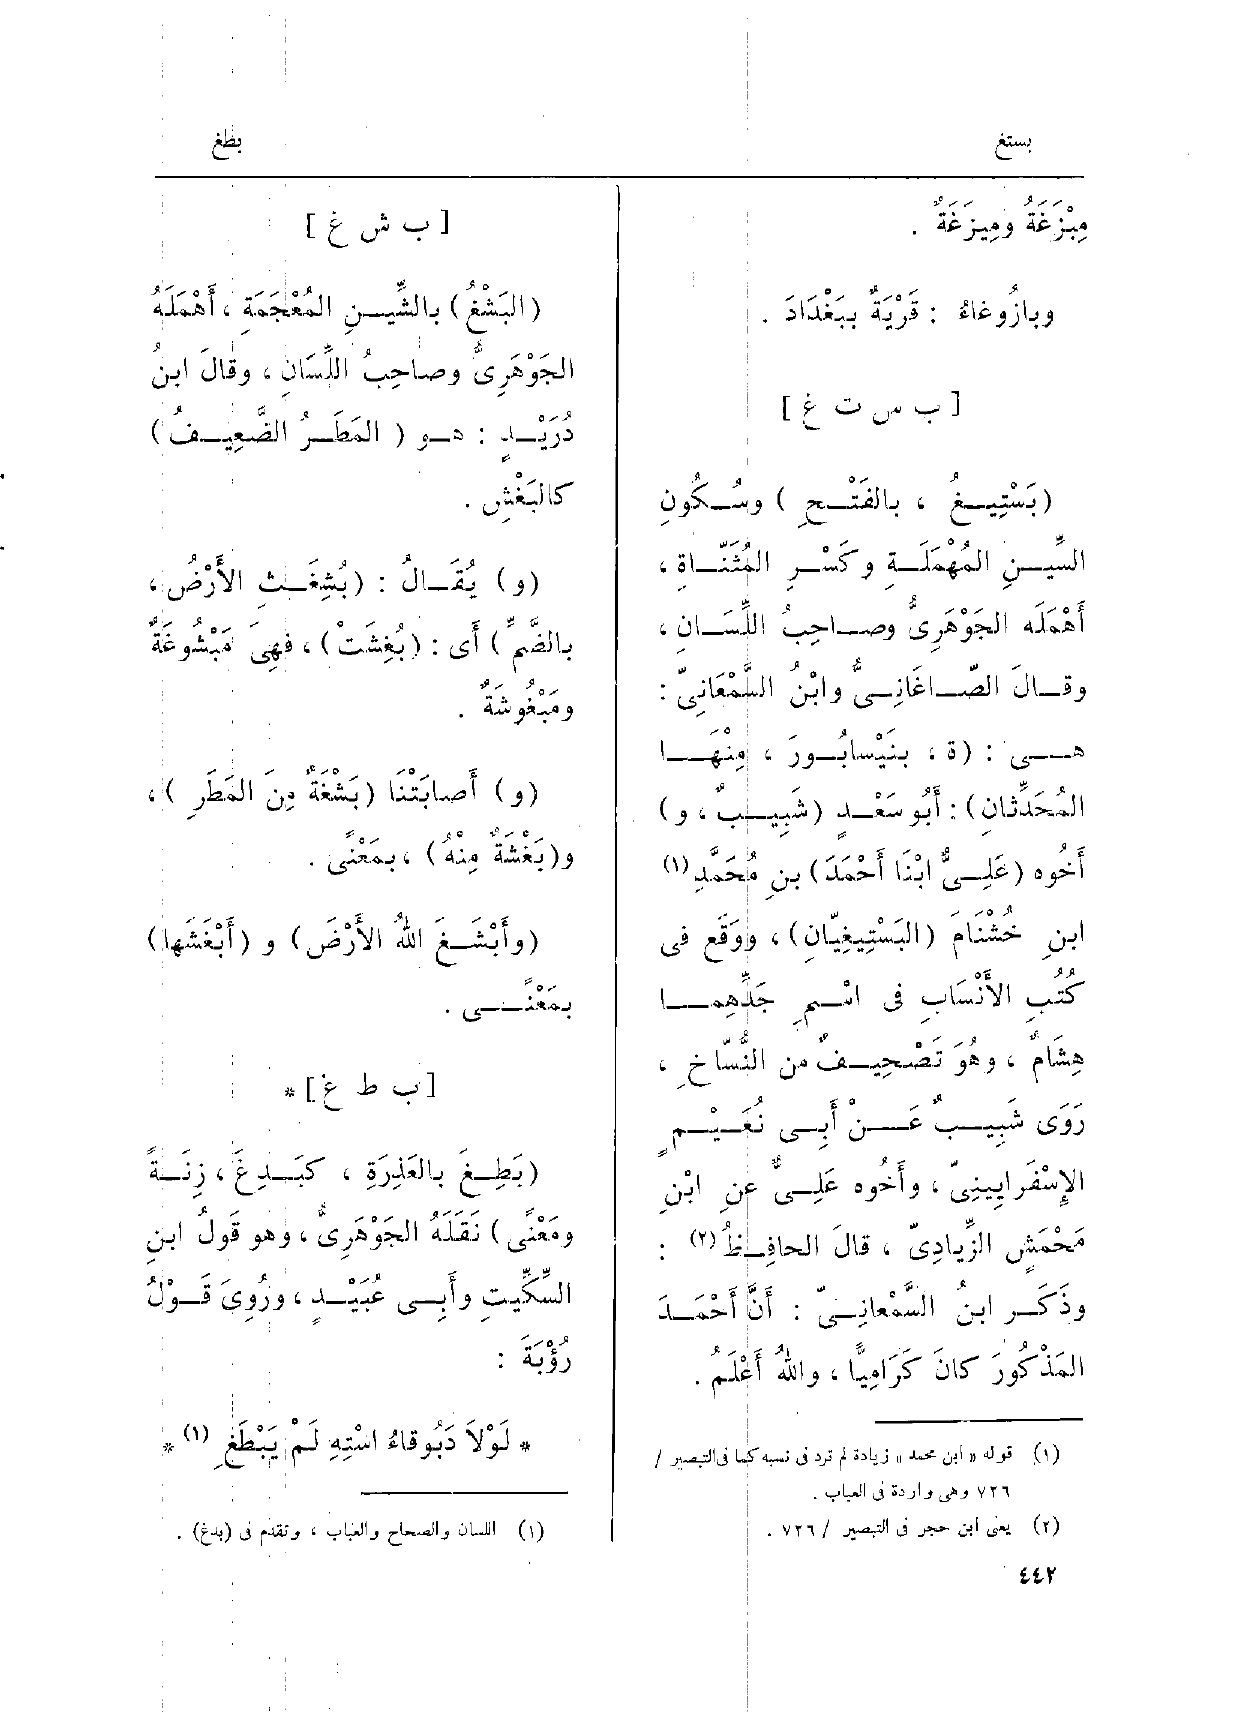 بستغ
بطغ
مِبْزَغَةُ ومِيزَغَةٌ .
وبازُوغاءُ : قَرْيَةٌ بِبَغْدَادَ .
[ ب س ت غ ]
(بَسْتِيغُ ، بالفَتْحِ ) وسُكُونِ
السِّينِ المُهْمَلَةِ وكَسْرِ المُثَنّاةِ ،
أَهْمَلَه الجَوْهَرِىُّ وصاحِبُ اللِّسَانِ ،
وقالَ الصّاغَانِىُّ وابْنُ السَّمْعَانِىّ :
هى : (ة ، بنَيْسابُورَ ، مِنْهَا
المُحَدِّثانِ) : أَبُو سَعْدٍ (شَبِيبٌ ، و)
أَخُوه (عَلِىٌّ ابْنَا أَحْمَدَ) بنِ مُحَمَّدِ (١)
ابنِ خُشْنَامَ (البَسْتِيغِيّانِ) ، ووَقَع فى
كُتُبِ الأَنْسَابِ فى اسْمِ جَدِّهِما
هِشَامٌ ، وهُوَ تَصْحِيفٌ من النُّسّاخِ ،
رَوَى شَبِيبٌ عَنْ أَبِى نُعَيْمٍ
الإِسْفَرايِينِىّ ، وأَخُوه عَلِىٌّ عنِ ابْنِ
مَحْمَشٍ الزِّيادِىّ ، قالَ الحافِظُ (٢) :
وذَكَر ابنُ السَّمْعانِىّ : أَنَّ أَحْمَدَ
المَذْكُورَ كانَ كَرّامِيًّا ، واللهُ أَعْلَمُ .
(١) قوله « ابن محمد » زيادة لم ترد فى نسبه كما فى التبصير /
٧٢٦ وهى واردة فى العباب .
(٢) يعنى ابن حجر فى التبصير / ٧٢٦ .
٤٤٢
[ ب ش غ ]
(البَشْغُ) بالشِّينِ المُعْجَمَةِ ، أَهْمَلَهُ
الجَوْهَرِىُّ وصاحِبُ اللِّسَانِ ، وقالَ ابنُ
دُرَيْدٍ : هو ( المَطَرُ الضَّعِيفُ )
كالبَغْشِ .
(و) يُقَالُ : (بُشِغَتِ الأَرْضُ ،
بالضَّمِّ ) أى : (بُغِشَتْ) ، فهِىَ مَبْشُوغَةٌ
ومَبْغُوشَةٌ .
(و) أَصابَتْنَا (بَشْغَةٌ مِنَ المَطَرِ ) ،
و(بَغْشَةٌ مِنْهُ) ، بمَعْنًى .
(وأَبْشَغَ اللهُ الأَرْضَ) و (أَبْغَشَها)
بمَعْنًى .
[ ب ط غ ] *
(بَطِغَ بالعَذِرَةِ ، كبَدِغَ ، زِنَةً
ومَعْنًى) نَقَلَهُ الجَوْهَرِىُّ ، وهو قَولُ ابنِ
السِّكِّيتِ وأَبِى عُبَيْدٍ ، ورُوِىَ قَوْلُ
رُؤْبَةَ :
* لَوْلاَ دَبُوقاءُ اسْتِهِ لَمْ يَبْطَغِ (١) *
(١) اللسان والصحاح والعباب ، وتقدم فى (بدغ) .